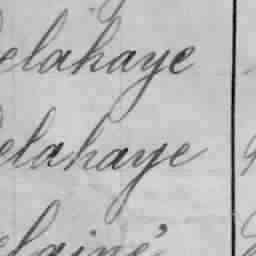 elahaye
elahaye
elainé